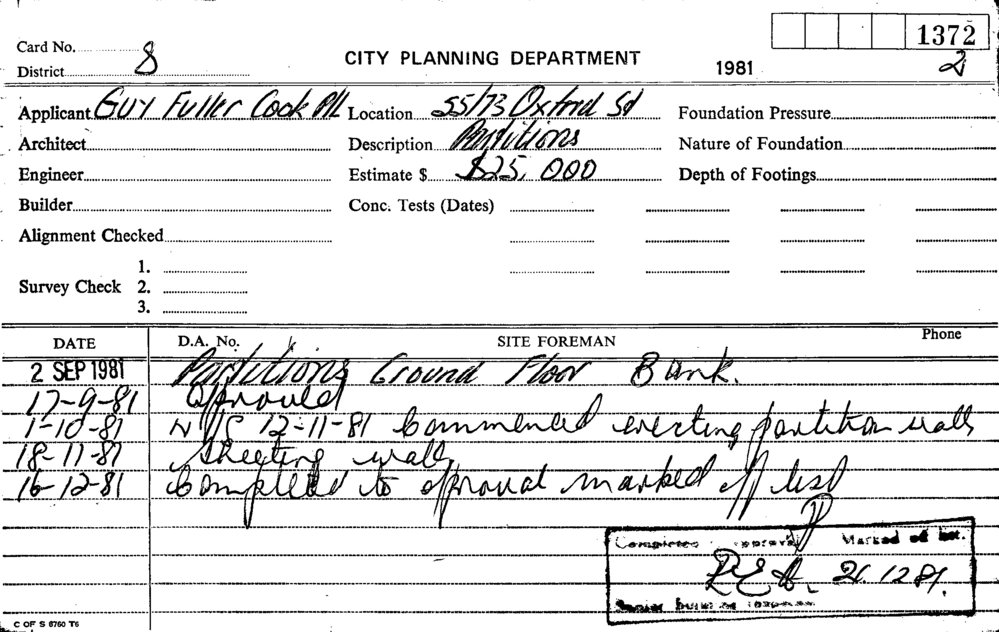 1372
Card No. 8
District
CITY PLANNING DEPARTMENT
1981 2
Applicant Guy Fuller Cook P/L Location 55/73 Oxford St Foundation Pressure
Architect Description Partitions Nature of Foundation
Engineer Estimate $ $25,000 Depth of Footings
Builder Conc. Tests (Dates)
Alignment Checked
1.
Survey Check 2.
3.
DATE D.A. No. SITE FOREMAN Phone
2 SEP 1981 Partitions Ground Floor Bank.
17-9-81 Approved
1-10-81 N/C 12-11-81 Commenced erecting partition walls
18-11-81 Sheeting walls
16-12-81 Completed to approval marked off list
Completed approval Marked off list.
21.12.81.
Senior building inspector
C OF S 6760 T6